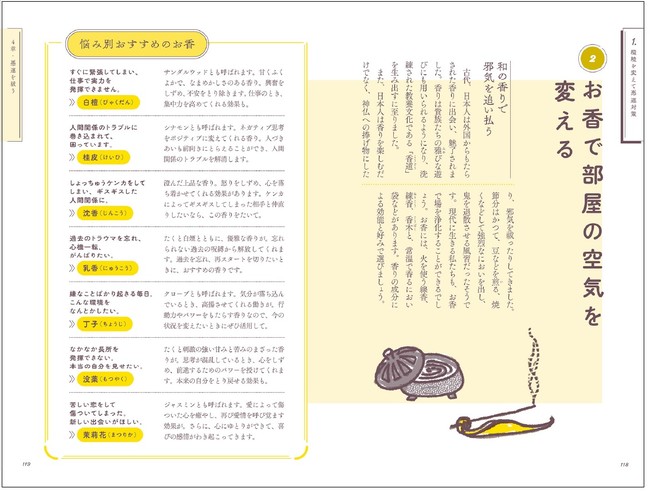 1. 環境を変えて悪運対策
2
お香で部屋の空気を
変える
和の香りで
邪気を追い払う
古代、日本人は外国からもたら
された香りに出会い、魅了されま
す。香りは貴族たちの雅びな遊
びにも用いられるようになり、洗
練された教養文化である「香道」
を生み出すに至りました。
また、日本人は香りを楽しむだ
けでなく、神仏への捧げ物にした
り、邪気を祓ったりしてきました。
節分はかつて、豆などを煎る、焼
くなどして強烈なにおいを出し、
鬼を退散させる風習だったそうで
す。現代に生きる私たちも、お香
で場を浄化することができるでし
ょう。お香には、火を使う線香、
練香、香木と、常温で香るにおい
袋などがあります。香りの成分に
よる効能と好みで選びましょう。
118
4章・悪運を祓う
悩み別おすすめのお香
すぐに緊張してしまい、
仕事で実力を
発揮できません。
白檀(びゃくだん)
サンダルウッドとも呼ばれます。甘くふく
よかで、なまめかしさのある香り。興奮を
しずめ、不安をとり除きます。仕事のとき、
集中力を高めてくれる効果も。
人間関係のトラブルに
巻き込まれて、
困っています。
桂皮(けいひ)
シナモンとも呼ばれます。ネガティブ思考
をポジティブに変えてくれる香り。人づき
あいも前向きにとらえることができ、人間
関係のトラブルを解消します。
しょっちゅうケンカをして
しまい、ギスギスした
人間関係に。
沈香(じんこう)
澄んだ上品な香り。怒りをしずめ、心を落
ち着かせてくれる効果があります。ケンカ
によってギスギスしてしまった相手と仲直
りしたいなら、この香りをたいて。
過去のトラウマを忘れ、
心機一転、
がんばりたい。
乳香(にゅうこう)
たくと白煙とともに、優雅な香りが。忘れ
られない過去の呪縛から解放してくれま
す。過去を忘れ、再スタートを切りたいと
きに、おすすめの香りです。
嫌なことばかり起きる毎日。
こんな環境を
なんとかしたい。
丁子(ちょうじ)
クローブとも呼ばれます。気分が落ち込
んでいるとき、高揚させてくれる働きが。行
動力やパワーをもたらす香りなので、今の
状況を変えたいときにぜひ活用して。
なかなか長所を
発揮できない。
本当の自分を見せたい。
没薬(もつやく)
たくと刺激の強い甘みと苦みのまざった香
りが。思考が混乱しているとき、心をしず
め、前進するためのパワーを授けてくれま
す。本来の自分をとり戻せる効果も。
苦しい恋をして
傷ついてしまった。
新しい出会いがほしい。
茉莉花(まつりか)
ジャスミンとも呼ばれます。愛によって傷
ついた心を癒やし、再び愛情を呼び戻す
効果が。さらに、心にゆとりができて、喜
びの感情がわき起こってきます。
119